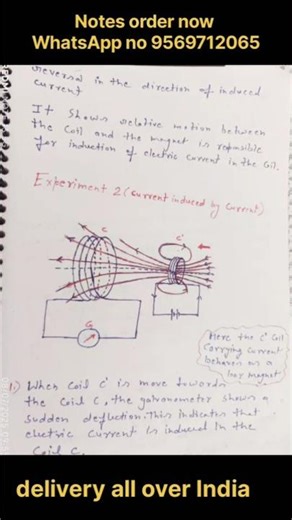 Notes order now
WhatsApp no 9569712065
reversal in the direction of induced
current
It shows relative motion between
the Coil and the magnet is
for induction of electric current in the Coil.
Experiment 2 (current induced by current)
C
C'
G
Here the C' Coil
Carrying current
behaves as a
bar magnet
1.) When Coil C' is move towards
the Coil C, the galvanometer shows a
sudden deflection. This indicates that
electric current is induced in the
Coil C.
delivery all over India